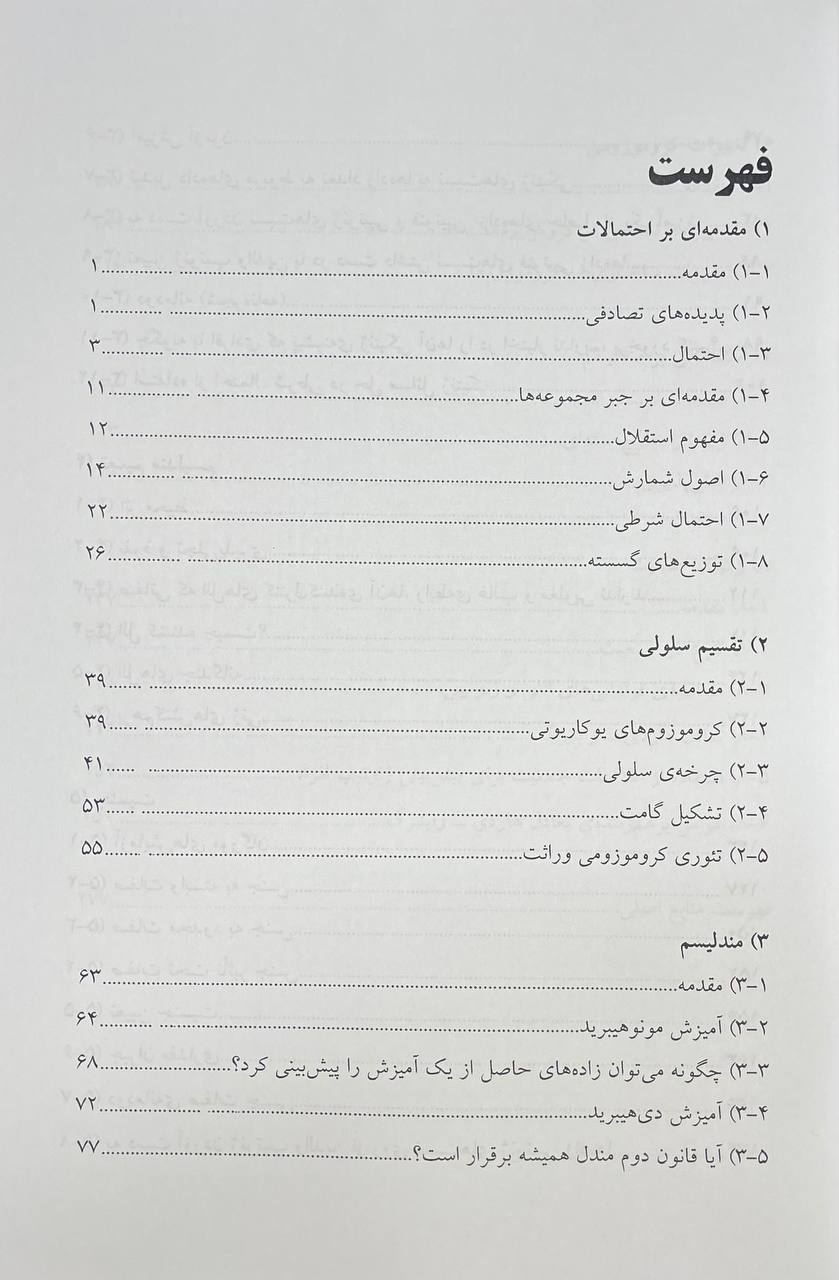 فهرست
۱) مقدمه‌ای بر احتمالات
۱-۱) مقدمه ۱
۱-۲) پدیده‌های تصادفی ۱
۱-۳) احتمال ۳
۱-۴) مقدمه‌ای بر جبر مجموعه‌ها ۱۱
۱-۵) مفهوم استقلال ۱۲
۱-۶) اصول شمارش ۱۴
۱-۷) احتمال شرطی ۲۲
۱-۸) توزیع‌های گسسته ۲۶
۲) تقسیم سلولی
۲-۱) مقدمه ۳۹
۲-۲) کروموزوم‌های یوکاریوتی ۳۹
۲-۳) چرخه‌ی سلولی ۴۱
۲-۴) تشکیل گامت ۵۳
۲-۵) تئوری کروموزومی وراثت ۵۵
۳) مندلیسم
۳-۱) مقدمه ۶۳
۳-۲) آمیزش مونوهیبرید ۶۴
۳-۳) چگونه می‌توان زاده‌های حاصل از یک آمیزش را پیش‌بینی کرد؟ ۶۸
۳-۴) آمیزش دی‌هیبرید ۷۲
۳-۵) آیا قانون دوم مندل همیشه برقرار است؟ ۷۷